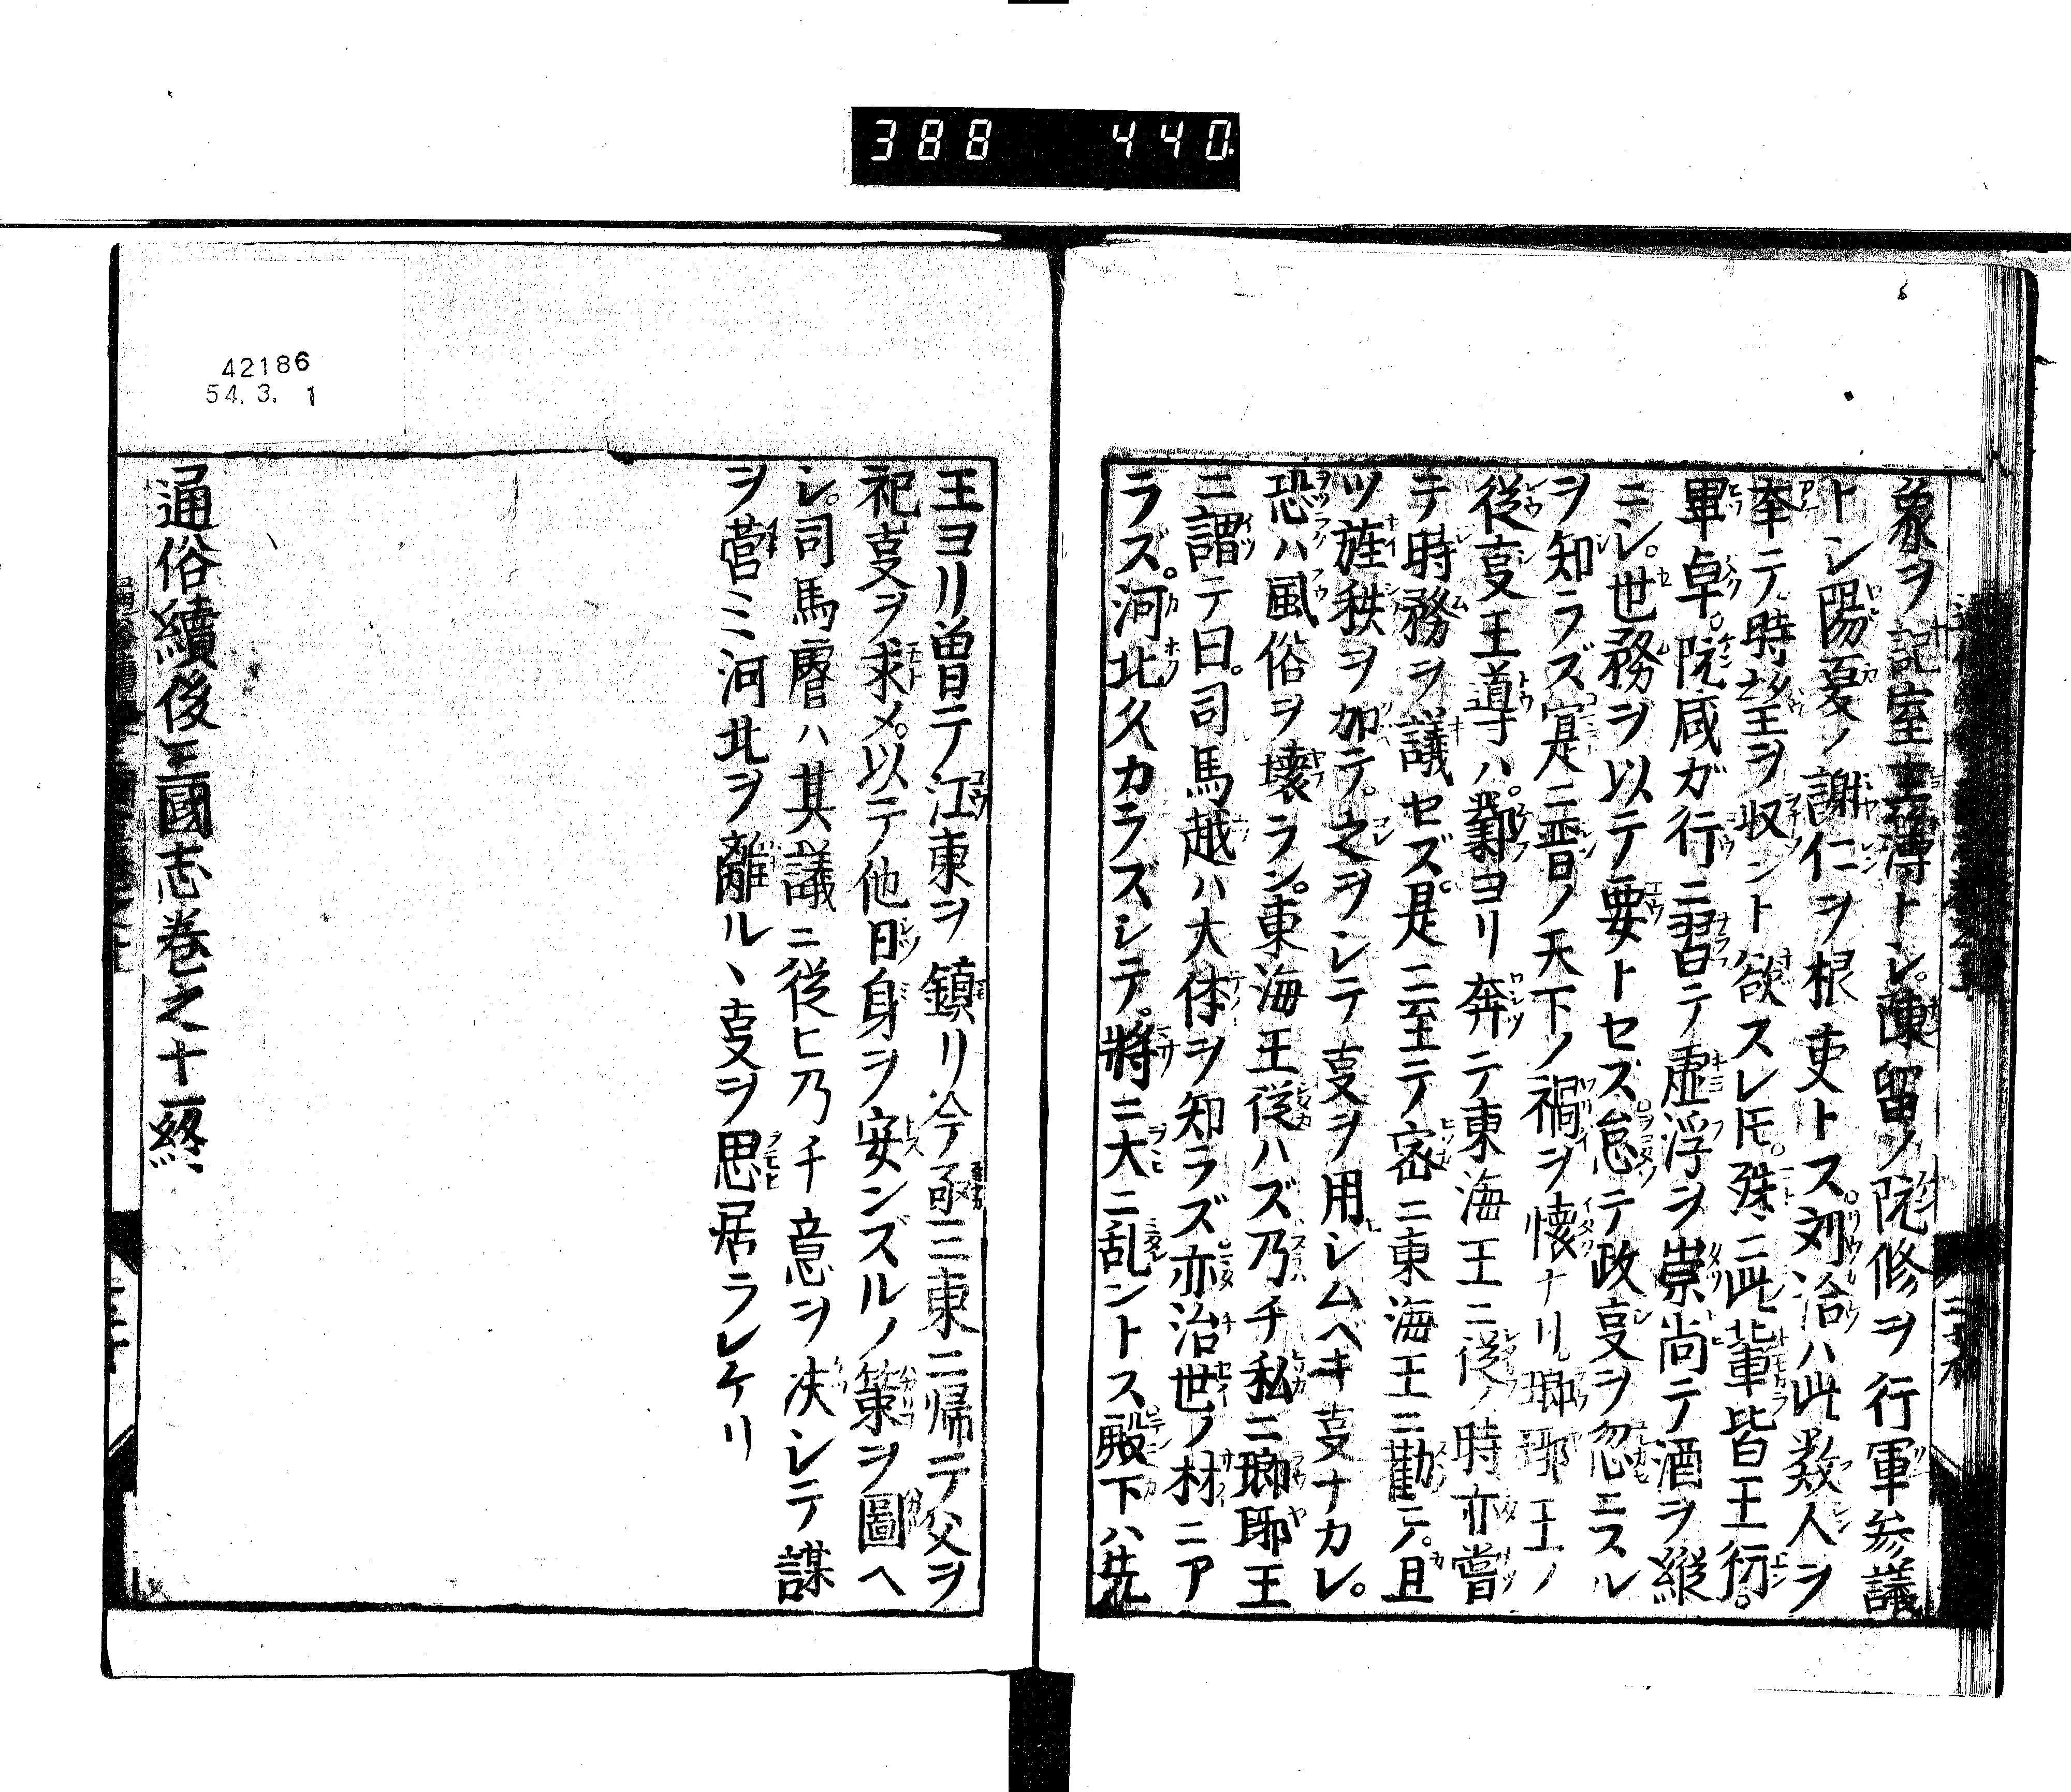 388 440.
象ヲ記室主薄トシ。陳留ノ阮修ヲ行軍參議
トシ陽夏ノ謝仁ヲ根吏トス。刘洽ハ此数人ヲ
牽テ時望ヲ収ント欲スレ𪜈。殊ニ此輩皆王衍。
畢卓。阮咸ガ行ニ習テ虚浮ヲ崇尚テ酒ヲ縦
ニシ。世務ヲ以テ要トセズ怠テ政叓ヲ忽ニスル
ヲ知ラズ寔ニ晋ノ天下ノ禍ヲ懐ナリ。瑯耶王ノ
従叓王導ハ。鄴ヨリ奔テ東海王ニ従ノ時亦嘗
テ時務ヲ議セズ。是ニ至テ密ニ東海王ニ勸テ。且
ツ旌秩ヲ加テ。之ヲシテ叓ヲ用シムベキ叓ナカレ。
恐ハ風俗ヲ壊ラン。東海王従ハズ乃チ私ニ瑯耶王
ニ謂テ曰。司馬越ハ大体ヲ知ラズ亦治世ノ材ニア
ラズ。河北久カラズシテ。將ニ大ニ乱ントス殿下ハ先
王ヨリ曽テ江東ヲ鎮リ今亟ニ東ニ帰テ父ヲ
祀叓ヲ求メ。以テ他日身ヲ安ンズルノ策ヲ圖ヘ
シ。司馬睿ハ其議ニ従ヒ乃チ意ヲ决シテ謀
ヲ営ミ河北ヲ離ルヽ叓ヲ思居ラレケリ
通俗續後三國志巻之十一終
42186
54.3.1